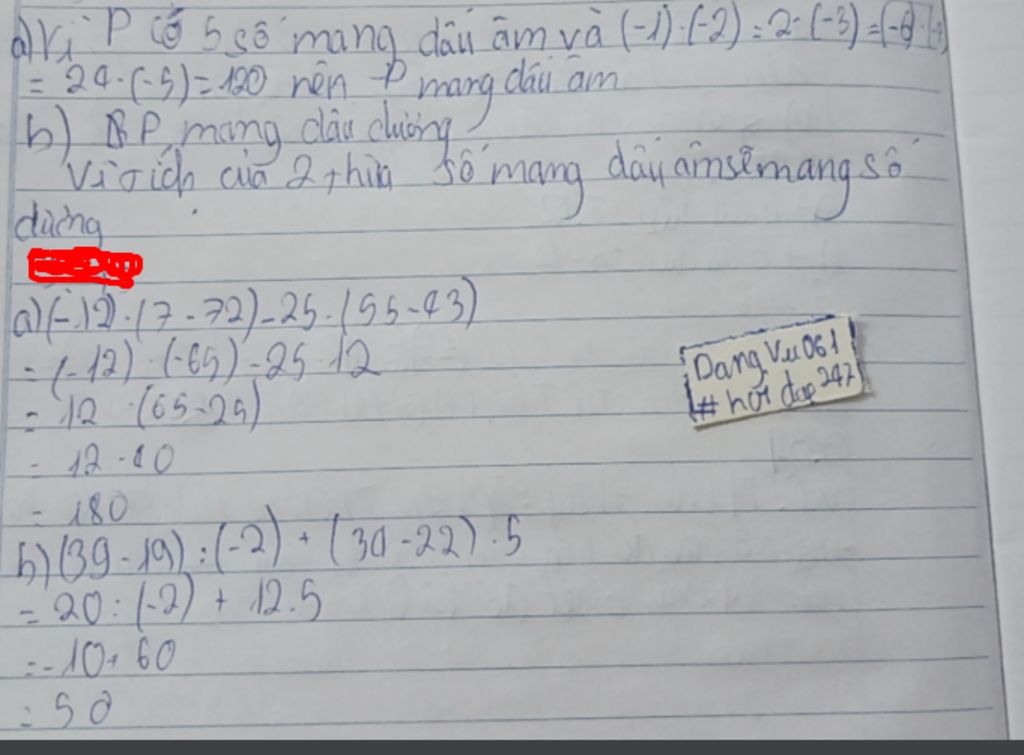 a) Vì P có 5 số mang dấu âm và (-1).(-2) = 2.(-3) = (-6).
= 24.(-5) = 120 nên P mang dấu âm
b) P mang dấu dương
Vì tích của 2 thừa số mang dấu âm sẽ mang số
dương
a) (-12).(7-72)-25.(55-43)
= (-12).(-65)-25.12
= 12.(65-25)
= 12.40
= 180
b) (39-19):(-2)+(34-22).5
= 20:(-2)+12.5
= -10+60
= 50
Dang Vu 061
# hỏi đáp 247